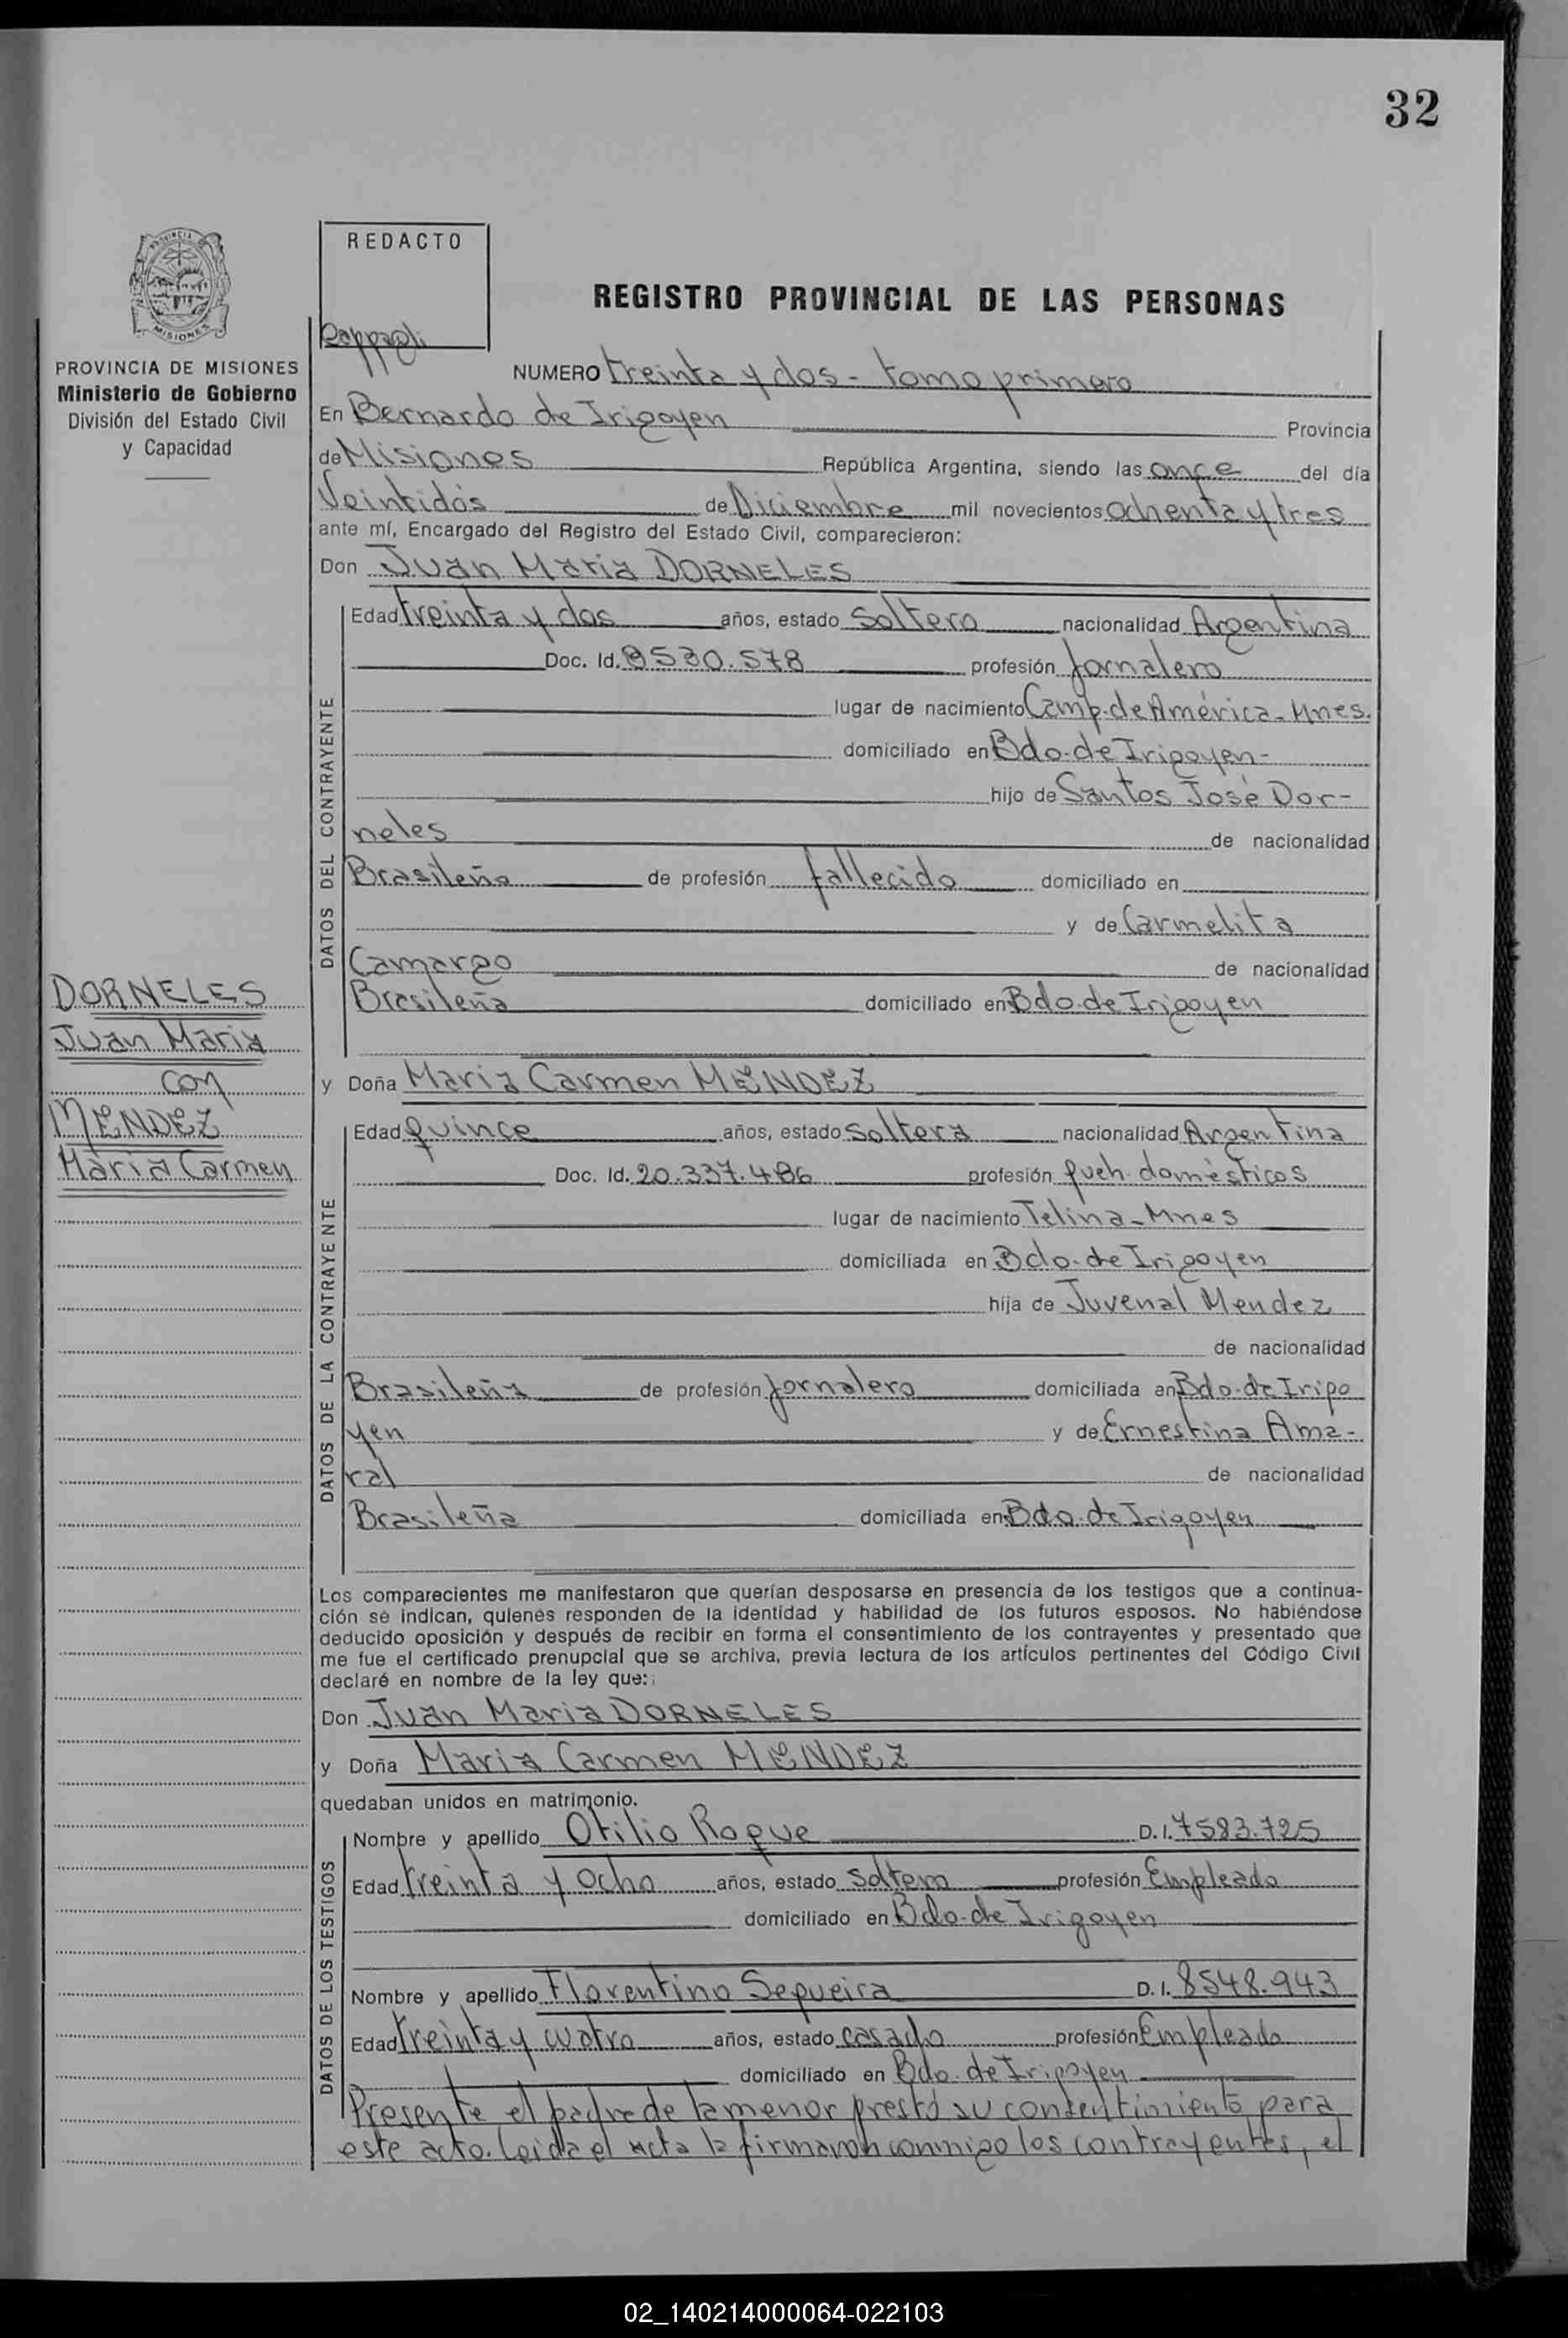 32
REDACTO
REGISTRO PROVINCIAL DE LAS PERSONAS
PROVINCIA DE MISIONES
Ministerio de Gobierno
División del Estado Civil
y Capacidad
NUMERO treinta y dos - tomo primero
En Bernardo de Irigoyen Provincia
de Misiones República Argentina, siendo las once del día
Veintidós de Diciembre mil novecientos ochenta y tres
ante mí, Encargado del Registro del Estado Civil, comparecieron:
Don Juan Maria DORNELES
DATOS DEL CONTRAYENTE
Edad treinta y dos años, estado Soltero nacionalidad Argentina
Doc. Id. 8530.578 profesión Jornalero
lugar de nacimiento Camp. de América - Mnes.
domiciliado en Bdo. de Irigoyen -
hijo de Santos José Dor-
neles de nacionalidad
Brasileño de profesión fallecido domiciliado en
y de Carmelita
Camargo de nacionalidad
Brasileña domiciliado en Bdo. de Irigoyen
DORNELES
Juan Maria
con
MENDEZ
Maria Carmen
y Doña Maria Carmen MENDEZ
DATOS DE LA CONTRAYENTE
Edad quince años, estado Soltera nacionalidad Argentina
Doc. Id. 20.337.486 profesión queh. domésticos
lugar de nacimiento Telina - Mnes
domiciliada en Bdo. de Irigoyen
hija de Juvenal Mendez
de nacionalidad
Brasileña de profesión Jornalero domiciliada en Bdo. de Irigo
yen y de Ernestina Ama-
ral de nacionalidad
Brasileña domiciliada en Bdo. de Irigoyen
Los comparecientes me manifestaron que querían desposarse en presencia de los testigos que a continua-
ción se indican, quienes responden de la identidad y habilidad de los futuros esposos. No habiéndose
deducido oposición y después de recibir en forma el consentimiento de los contrayentes y presentado que
me fue el certificado prenupcial que se archiva, previa lectura de los artículos pertinentes del Código Civil
declaré en nombre de la ley que:
Don Juan Maria DORNELES
y Doña Maria Carmen MENDEZ
quedaban unidos en matrimonio.
DATOS DE LOS TESTIGOS
Nombre y apellido Otilio Roque D. I. 7583.725
Edad treinta y ocho años, estado soltero profesión Empleado
domiciliado en Bdo. de Irigoyen
Nombre y apellido Florentino Sequeira D. I. 8548.943
Edad treinta y cuatro años, estado casado profesión Empleado
domiciliado en Bdo. de Irigoyen
Presente el padre de la menor prestó su consentimiento para
este acto. Leida el acta la firmaron conmigo los contrayentes, el
02_140214000064-022103